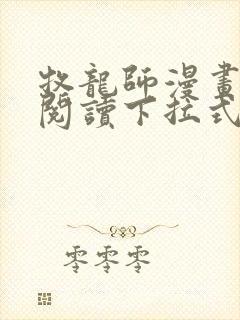 牧龍師漫畫
閱讀下拉式
零零零